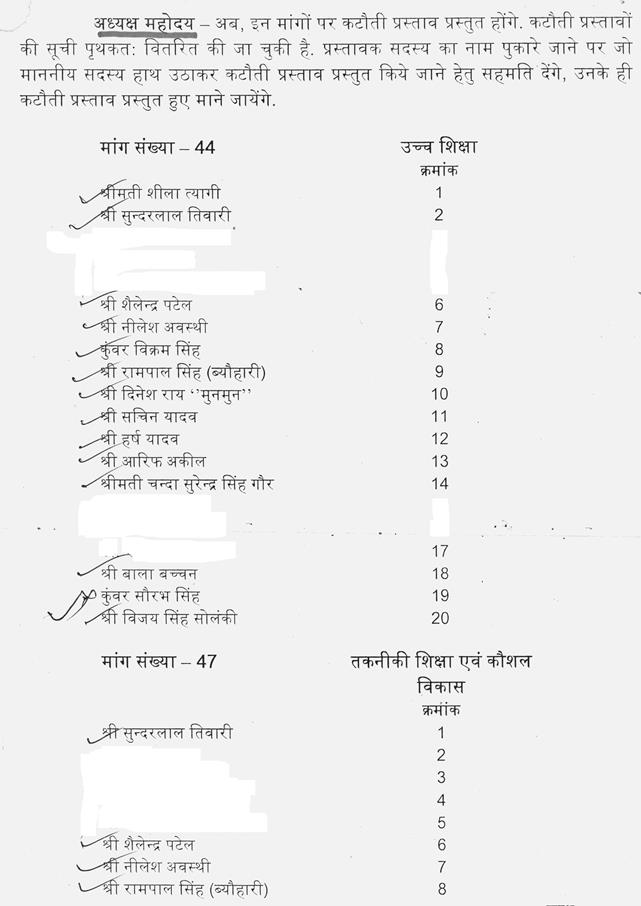 अध्यक्ष महोदय – अब, इन मांगों पर कटौती प्रस्ताव प्रस्तुत होंगे. कटौती प्रस्तावों
की सूची पृथकत: वितरित की जा चुकी है. प्रस्तावक सदस्य का नाम पुकारे जाने पर जो
माननीय सदस्य हाथ उठाकर कटौती प्रस्ताव प्रस्तुत किये जाने हेतु सहमति देंगे, उनके ही
कटौती प्रस्ताव प्रस्तुत हुए माने जायेंगे.
मांग संख्या – 44 उच्च शिक्षा
क्रमांक
श्रीमती शीला त्यागी 1
श्री सुन्दरलाल तिवारी 2
श्री शैलेन्द्र पटेल 6
श्री नीलेश अवस्थी 7
कुंवर विक्रम सिंह 8
श्री रामपाल सिंह (ब्यौहारी) 9
श्री दिनेश राय ''मुनमुन'' 10
श्री सचिन यादव 11
श्री हर्ष यादव 12
श्री आरिफ अकील 13
श्रीमती चन्दा सुरेन्द्र सिंह गौर 14
17
श्री बाला बच्चन 18
कुंवर सौरभ सिंह 19
श्री विजय सिंह सोलंकी 20
मांग संख्या – 47 तकनीकी शिक्षा एवं कौशल
विकास
क्रमांक
श्री सुन्दरलाल तिवारी 1
2
3
4
5
श्री शैलेन्द्र पटेल 6
श्री नीलेश अवस्थी 7
श्री रामपाल सिंह (ब्यौहारी) 8